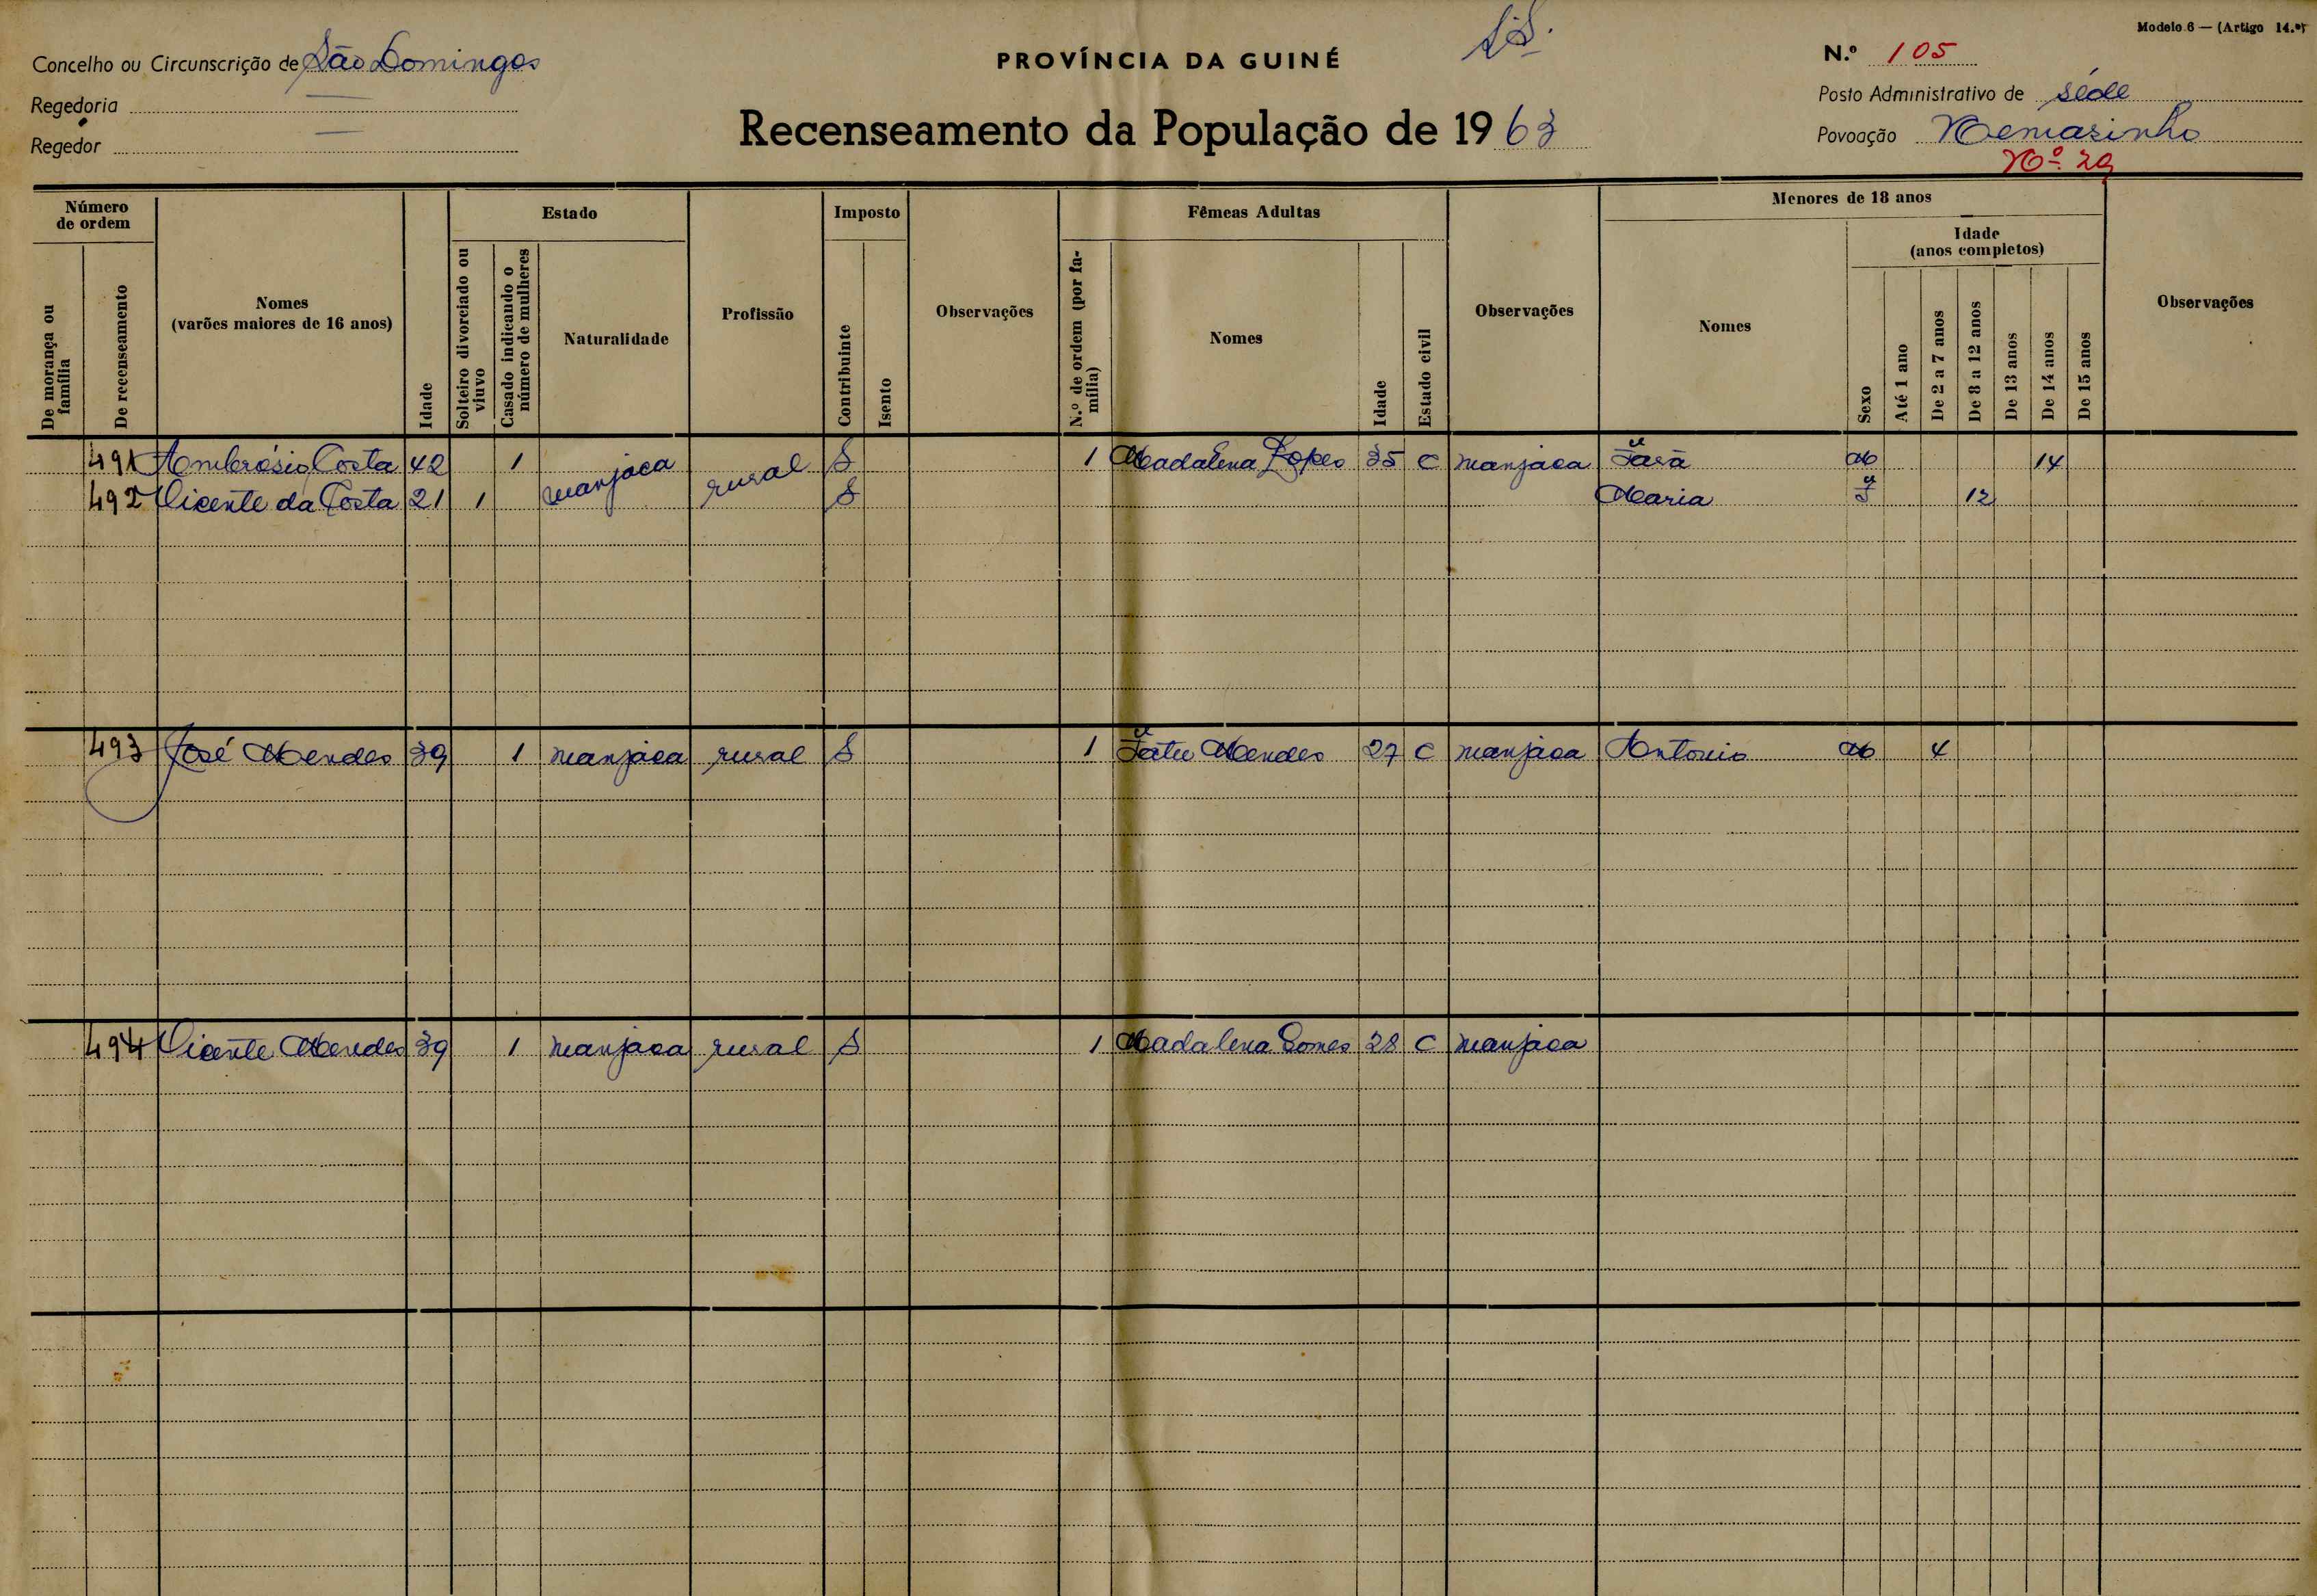 Modelo 6 — (Artigo 14.º)
Concelho ou Circunscrição de São Domingos
PROVÍNCIA DA GUINÉ
N.º 105
Regedoria —
Posto Administrativo de Séde
Regedor —
Recenseamento da População de 1963
Povoação
Nº 29
Número de ordem
Estado
Imposto
Fêmeas Adultas
Menores de 18 anos
Idade (anos completos)
De morança ou família
De recenseamento
Nomes (varões maiores de 16 anos)
Idade
Solteiro divorciado ou viuvo
Casado indicando o número de mulheres
Naturalidade
Profissão
Contribuinte
Isento
Observações
N.º de ordem (por família)
Nomes
Idade
Estado civil
Observações
Nomes
Sexo
Até 1 ano
De 2 a 7 anos
De 8 a 12 anos
De 13 anos
De 14 anos
De 15 anos
Observações
491 Ambrósio Costa 42 1 manjaca rural S 1 Madalena Lopes 35 C manjaca M 14
492 Vicente da Costa 21 1 S Maria F 12
493 José Mendes 39 1 manjaca rural S 1 Fatu Mendes 27 C manjaca Antonio M 4
494 Vicente Mendes 39 1 manjaca rural S 1 Madalena Gomes 28 C manjaca